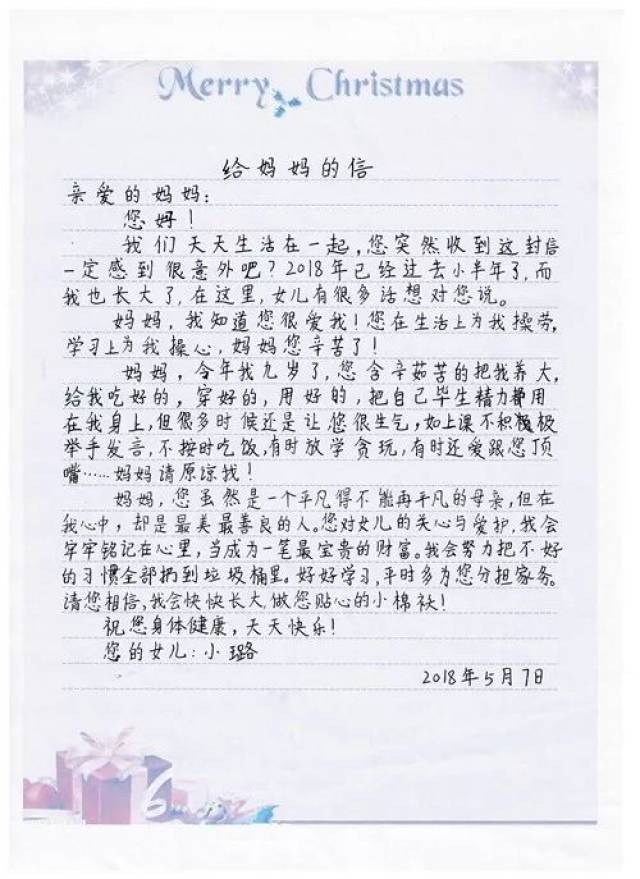 Merry Christmas
给妈妈的信
亲爱的妈妈:
您好!
我们天天生活在一起,您突然收到这封信
一定感到很意外吧?2018年已经过去小半年了,而
我也长大了,在这里,女儿有很多话想对您说。
妈妈,我知道您很爱我!您在生活上为我操劳,
学习上为我操心,妈妈您辛苦了!
妈妈,今年我九岁了,您含辛茹苦的把我养大,
给我吃好的,穿好的,用好的,把自己毕生精力都用
在我身上,但很多时候还是让您很生气,如上课不积极
举手发言,不按时吃饭,有时放学贪玩,有时还爱跟您顶
嘴……妈妈请原谅我!
妈妈,您虽然是一个平凡得不能再平凡的母亲,但在
我心中,却是最美最善良的人。您对女儿的关心与爱护,我会
牢牢铭记在心里,当成为一笔最宝贵的财富。我会努力把不好
的习惯全部扔到垃圾桶里。好好学习,平时多为您分担家务。
请您相信,我会快快长大,做您贴心的小棉袄!
祝您身体健康,天天快乐!
您的女儿:小璐
2018年5月7日